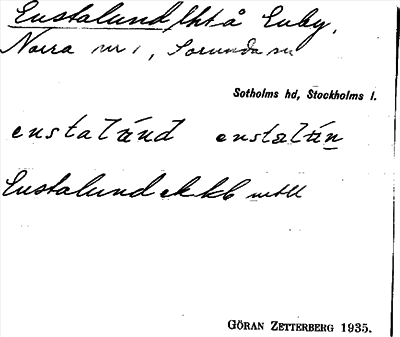 Enstalund, lht å Enby,
Norra nr 1, Sorunda sn
Sotholms hd, Stockholms l.
enstalund enstalun
Enstalund ekkb
GÖRAN ZETTERBERG 1935.